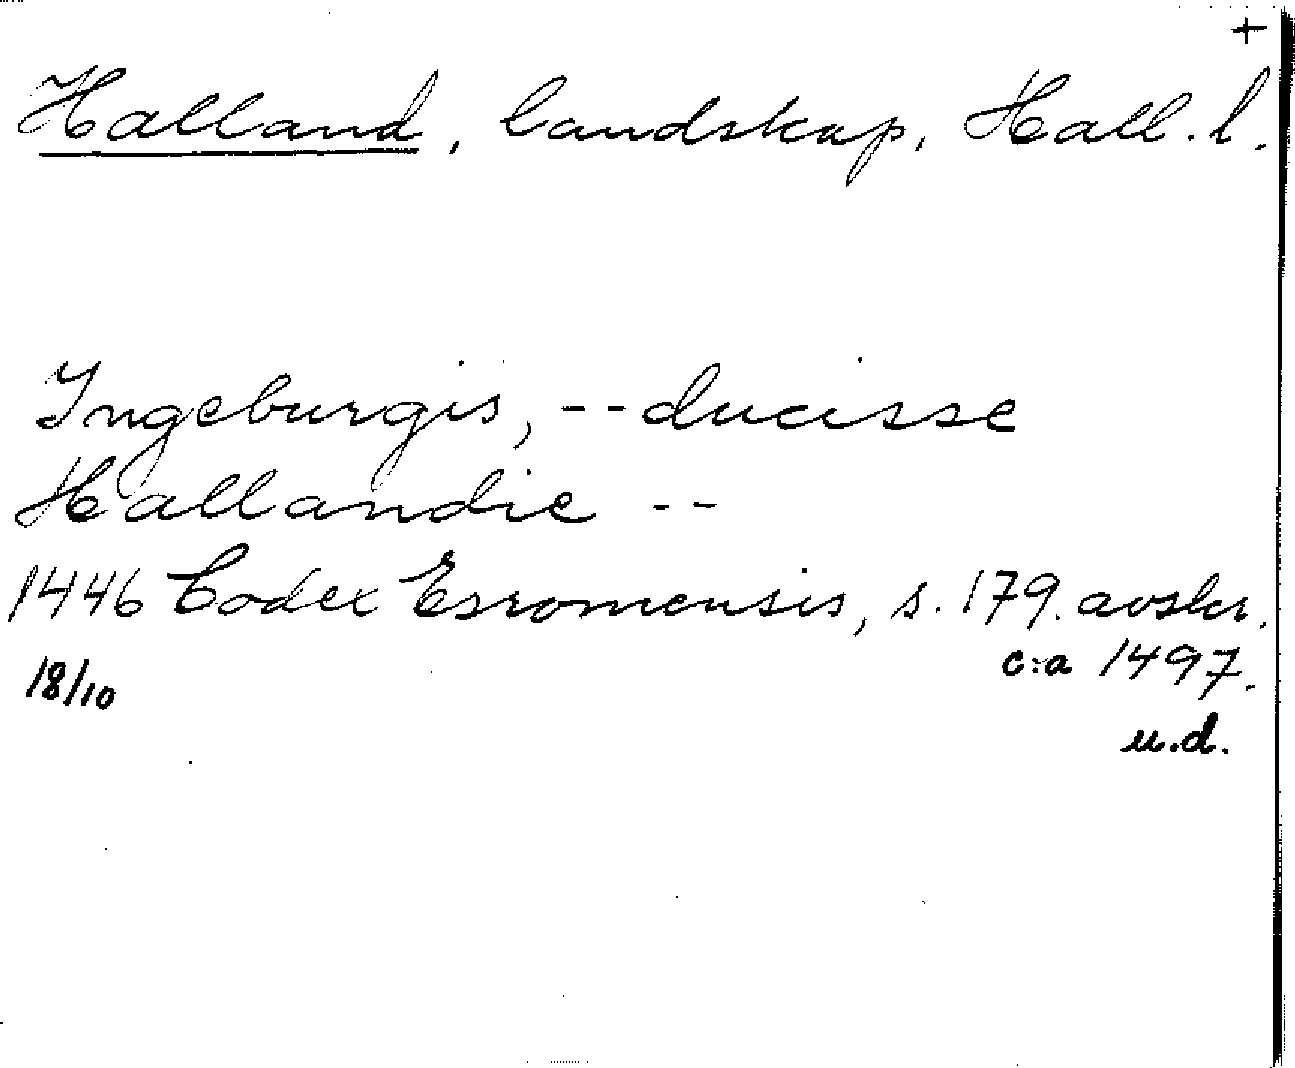 +
Halland, landskap, Hall. l.
Ingeburgis, -- ducisse
Hallandie --
1446 Codex Esromensis, s. 179. avskr.
18/10 c:a 1497.
u.d.